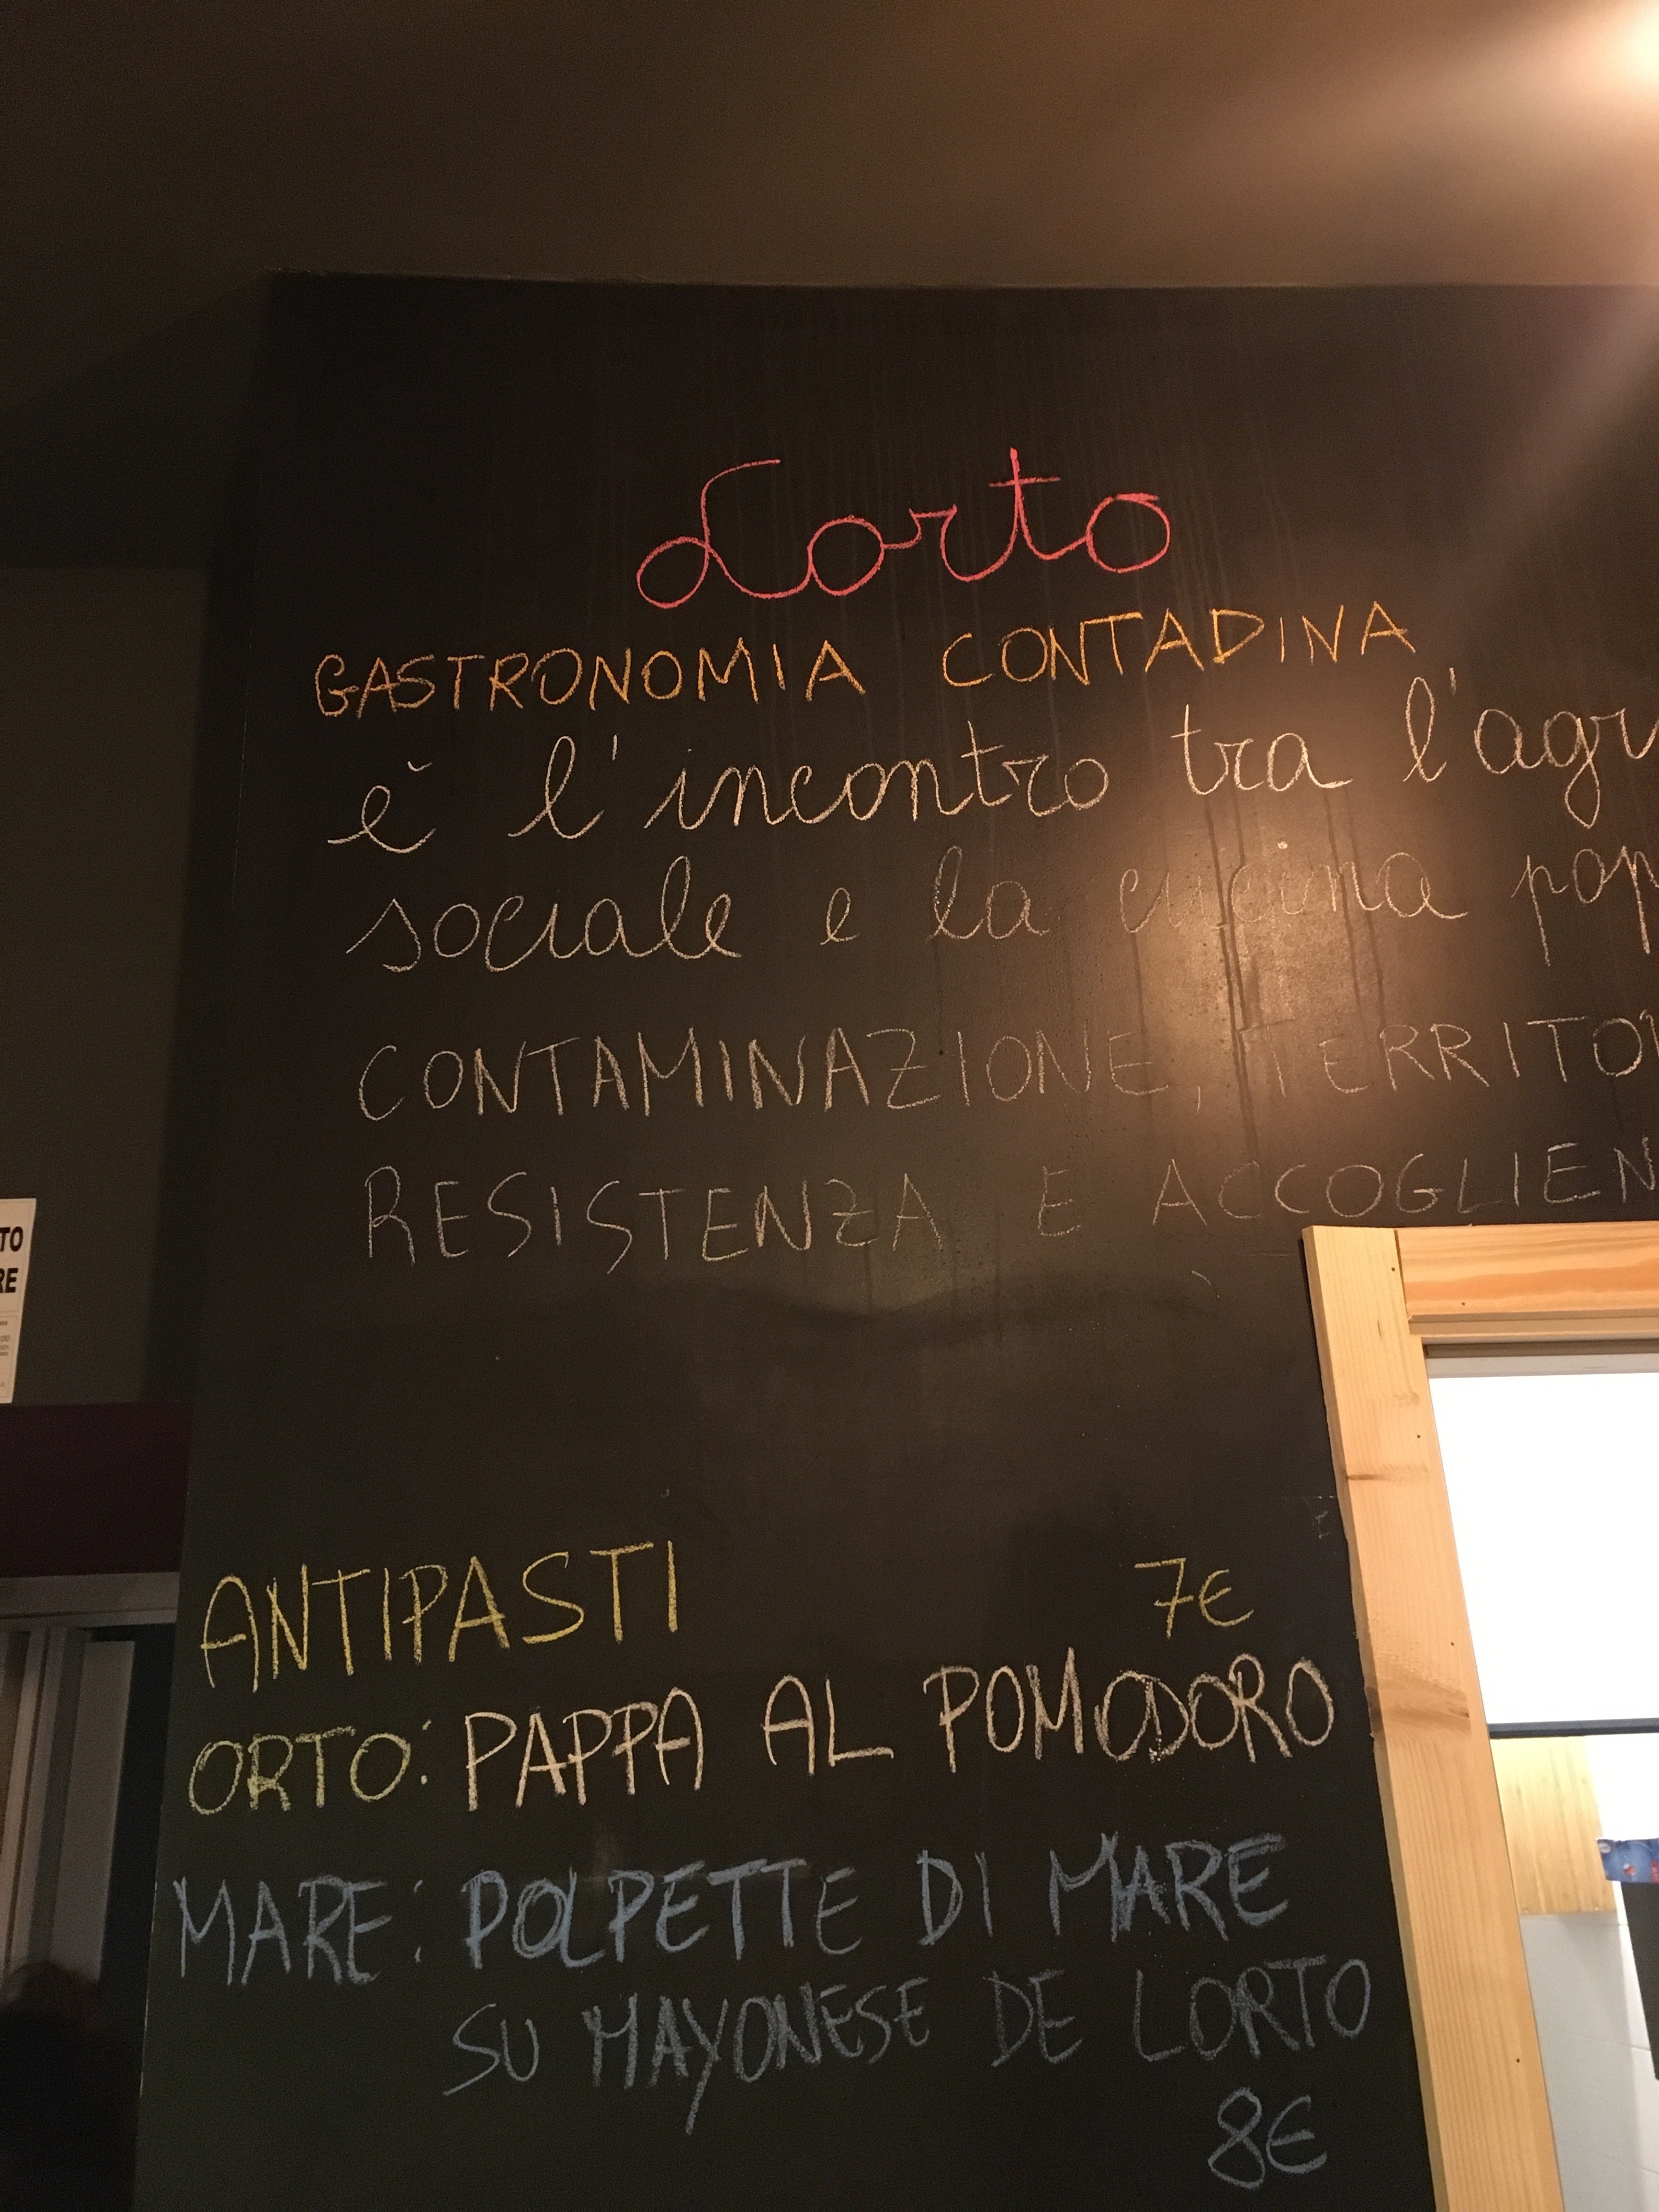 Lorto
GASTRONOMIA CONTADINA
è l'incontro tra l'agr
sociale e la cucina pop
CONTAMINAZIONE, TERRITO
RESISTENZA E ACCOGLIEN
TO
RE
ANTIPASTI 7€
ORTO: PAPPA AL POMODORO
MARE: POLPETTE DI MARE
SU MAYONESE DE LORTO
8€